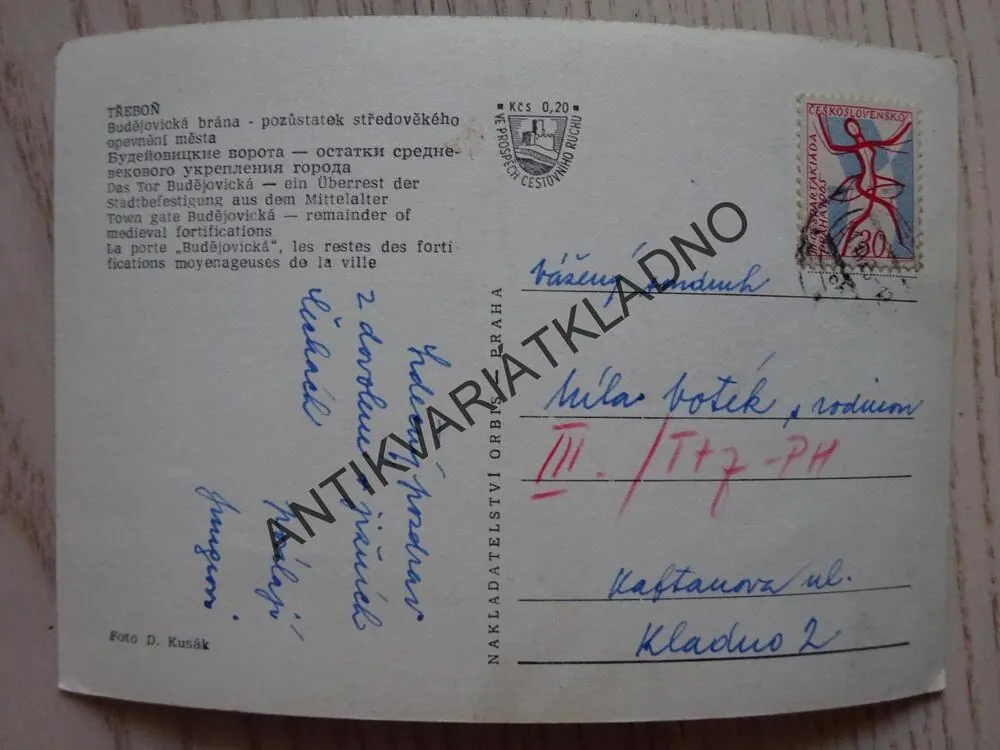 TŘEBOŇ
Budějovická brána - pozůstatek středověkého
opevnění města
Будейовицкие ворота — остатки средне-
векового укрепления города
Das Tor Budějovická — ein Überrest der
Stadtbefestigung aus dem Mittelalter
Town gate Budějovická — remainder of
medieval fortifications
La porte „Budějovická“, les restes des forti
fications moyenageuses de la ville
Srdečný pozdrav
z dovolené v jižních
Čechách
posílají
Foto D. Kusák
NAKLADATELSTVÍ ORBIS - PRAHA
Kčs 0,20
VE PROSPĚCH CESTOVNÍHO RUCHU
ČESKOSLOVENSKO
PRAHA 1965
30
Vážený soudruh
Míla Voték, rodinou
III. / T+7 -PH
Kaftanova ul.
Kladno 2
ANTIKVARIATKLADNO